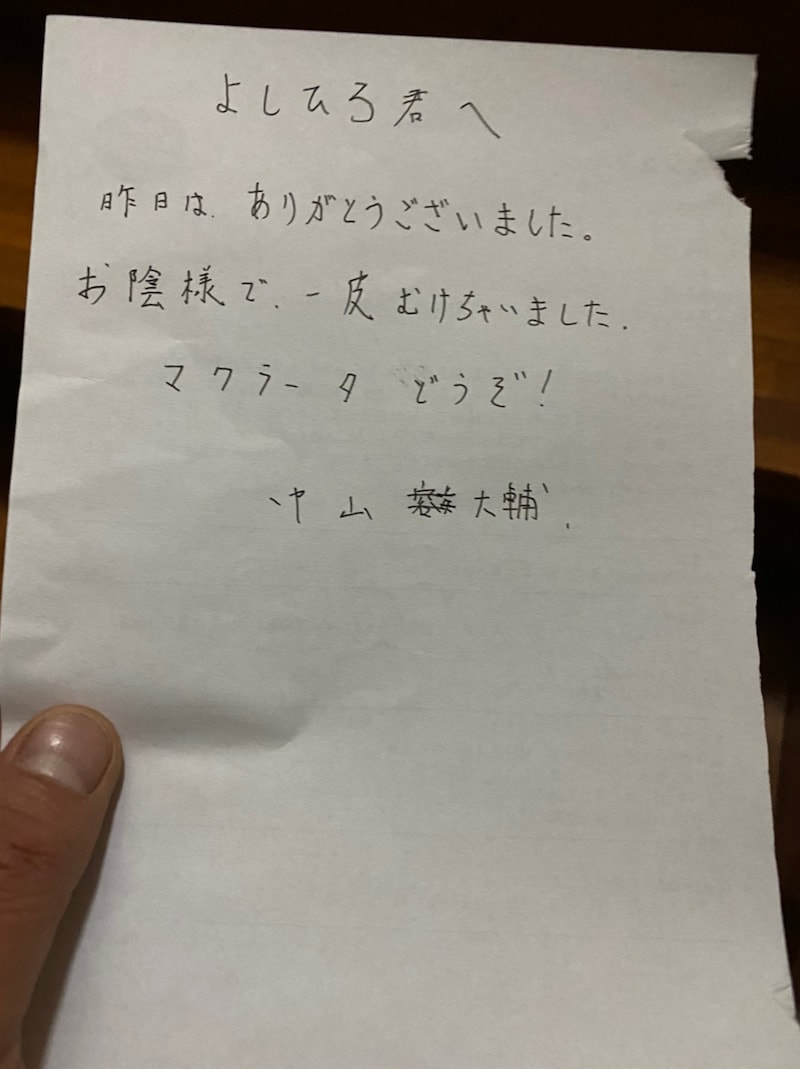 よしひろ君へ
昨日は、ありがとうございました。
お陰様で、一皮むけちゃいました.
マクラータ どうぞ!
中山 大輔.